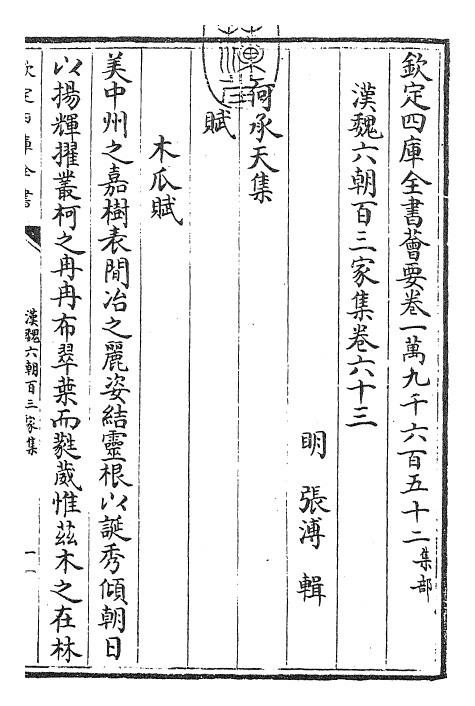 欽定四庫全書薈要卷一萬九千六百五十二集部
漢魏六朝百三家集卷六十三
明 張溥 輯
何承天集
賦
木瓜賦
美中州之嘉樹表閒冶之麗姿結靈根以誕秀傾朝日
以揚輝擢叢柯之冉冉布翠葉而蕤葳惟茲木之在林
欽定四庫全書
漢魏六朝百三家集
一